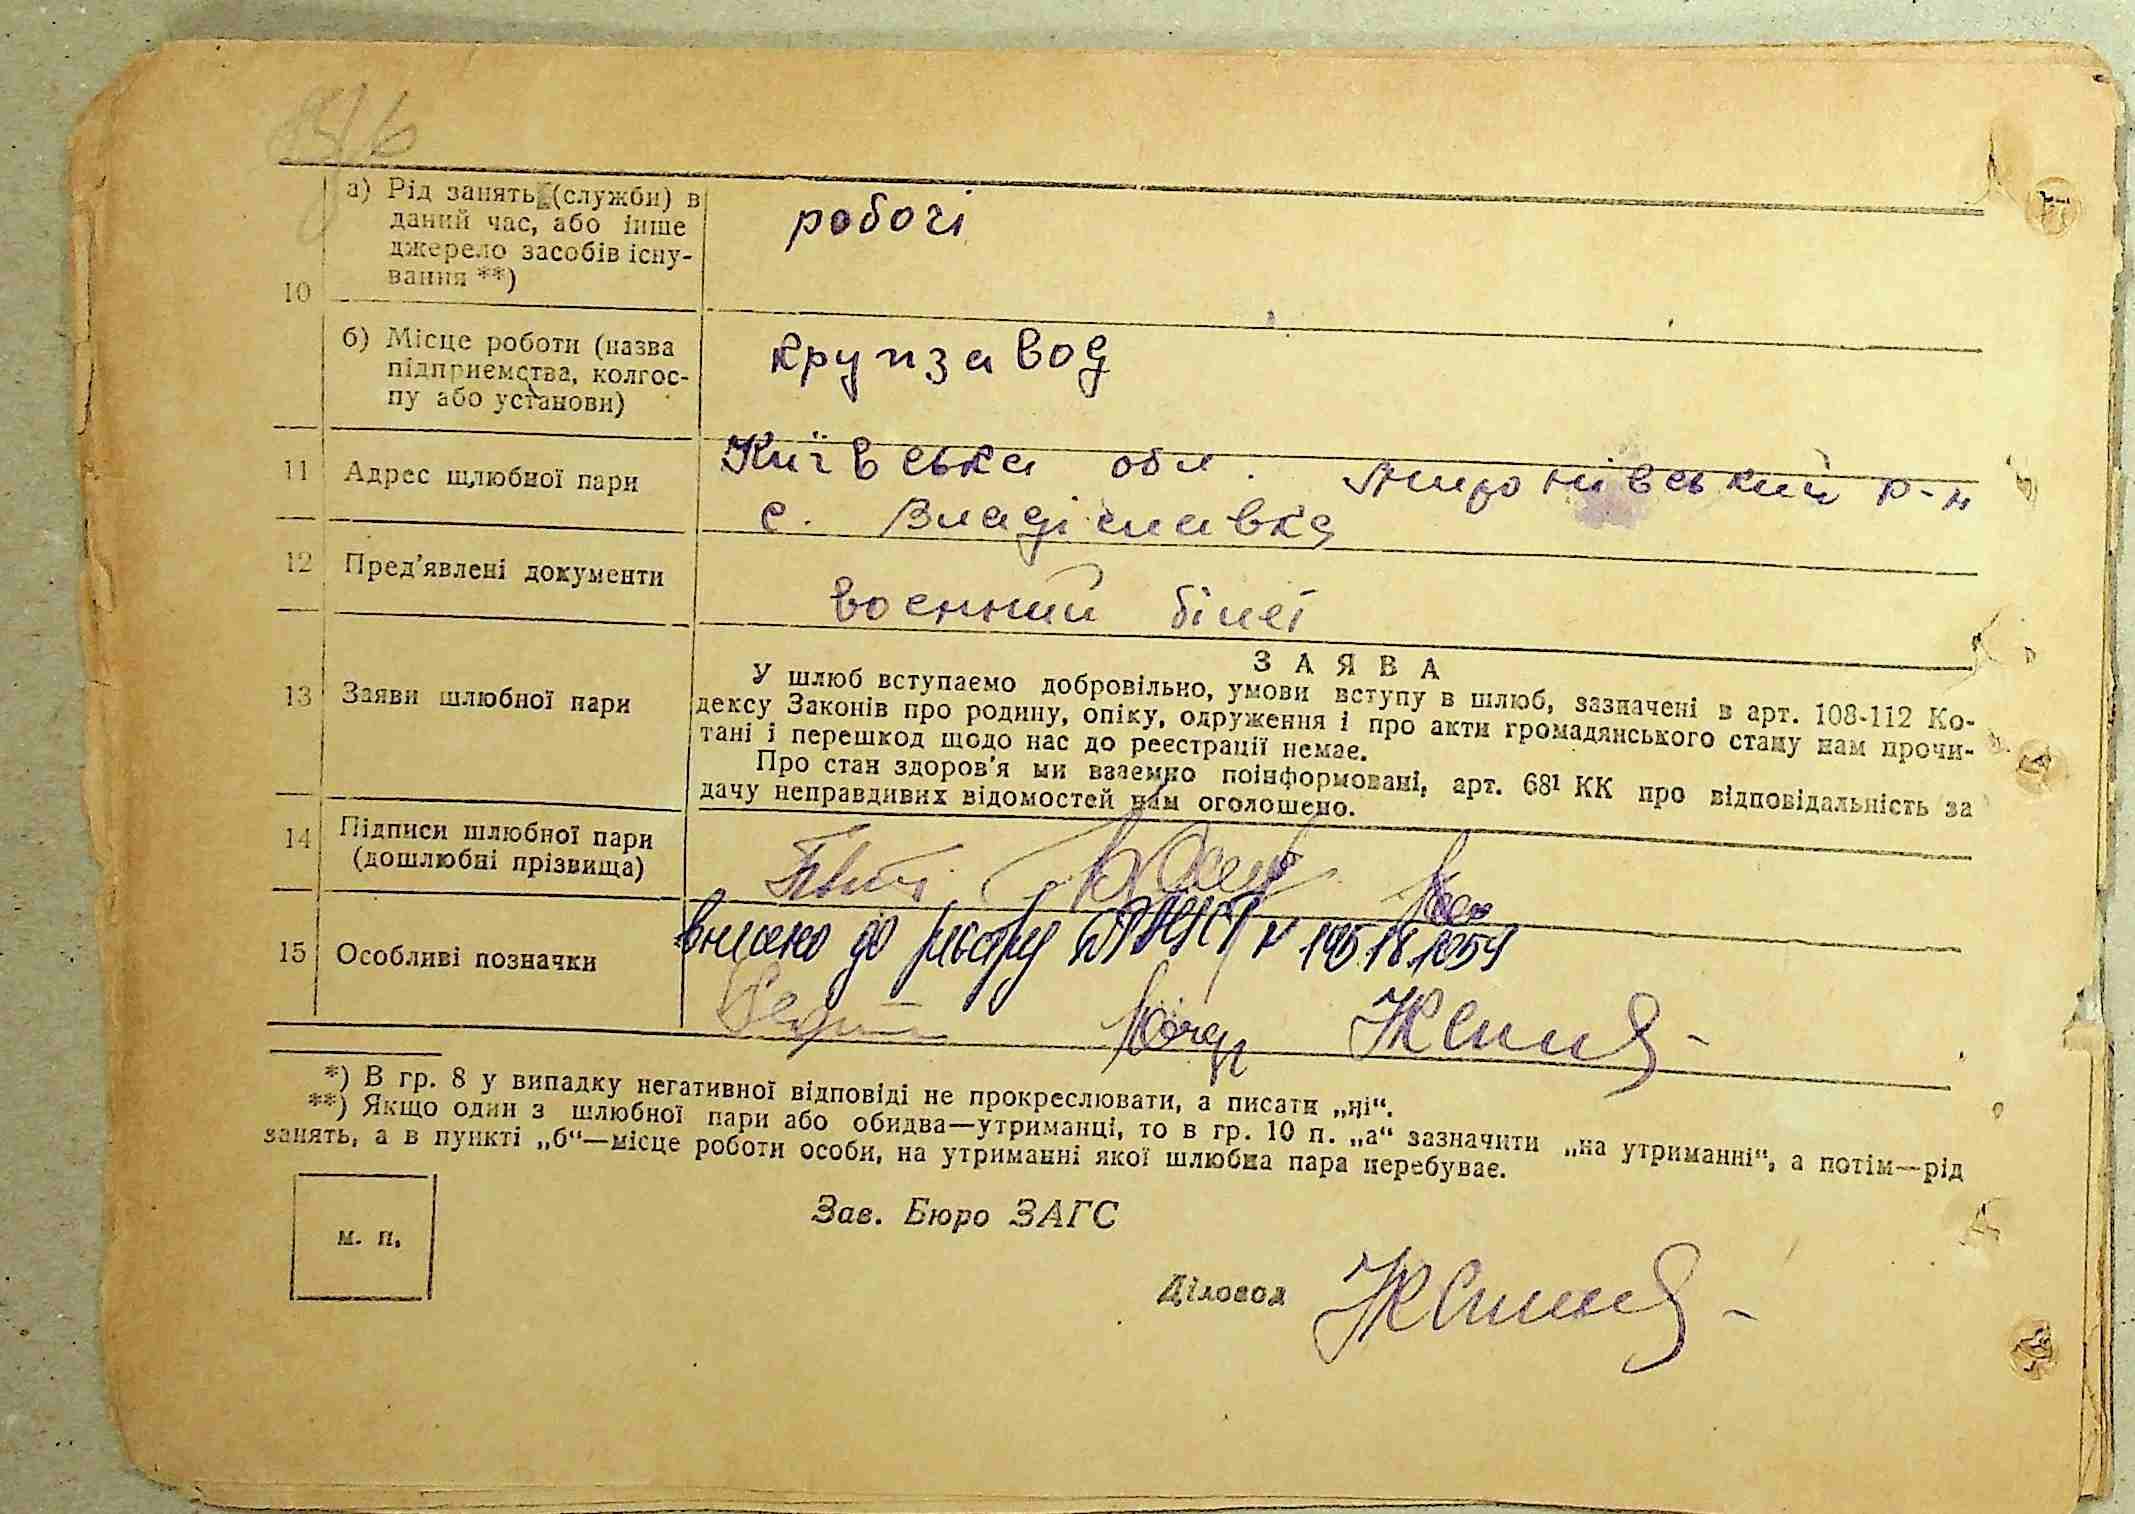 10
а) Рід занять (службн) в
даний час, або інше
джерело засобів існу-
вання **)
робочі
б) Місце роботи (назва
підприємства, колгос-
пу або установи)
крупзавод
11 Адрес шлюбної пари
Київська обл. Миронівський р-н
с. Владіславка
12 Пред'явлені документи
воєнний білет
13 Заяви шлюбної пари
ЗАЯВА
У шлюб вступаємо добровільно, умови вступу в шлюб, зазначені в арт. 108-112 Ко-
дексу Законів про родину, опіку, одруження і про акти громадянського стану нам прочи-
тані і перешкод щодо нас до реєстрації немає.
Про стан здоров'я ми взаємно поінформовані, арт. 68¹ КК про відповідальність за
дачу неправдивих відомостей нам оголошено.
14 Підписи шлюбної пари
(дошлюбні прізвища)
15 Особливі позначки
внесено до реєстру
*) В гр. 8 у випадку негативної відповіді не прокреслювати, а писати „ні“.
**) Якщо один з шлюбної пари або обидва—утриманці, то в гр. 10 п. „а“ зазначити „на утриманні“, а потім—рід
занять, а в пункті „б“—місце роботи особи, на утриманні якої шлюбна пара перебуває.
м. п.
Зав. Бюро ЗАГС
Діловод